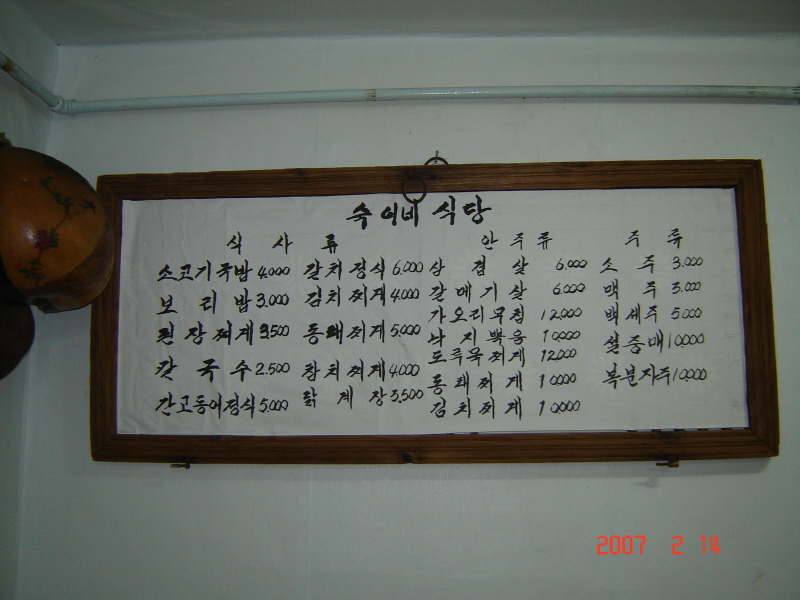 숙이네 식당
식사류 안주류 주류
소고기국밥 4.000 갈치정식 6.000 삼겹살 6.000 소주 3.000
보리밥 3.000 김치찌게 4.000 갈메기살 6.000 맥주 3.000
가오리무침 12.000 백세주 5.000
된장찌게 3.500 동태찌게 5.000 낙지볶음 10.000 설중매 10.000
도루묵찌게 12.000
칼국수 2.500 참치찌게 4.000 동태찌게 10.000 복분자주 10.000
간고등어정식 5.000 닭계장 3.500 김치찌게 10.000
2007 2 14